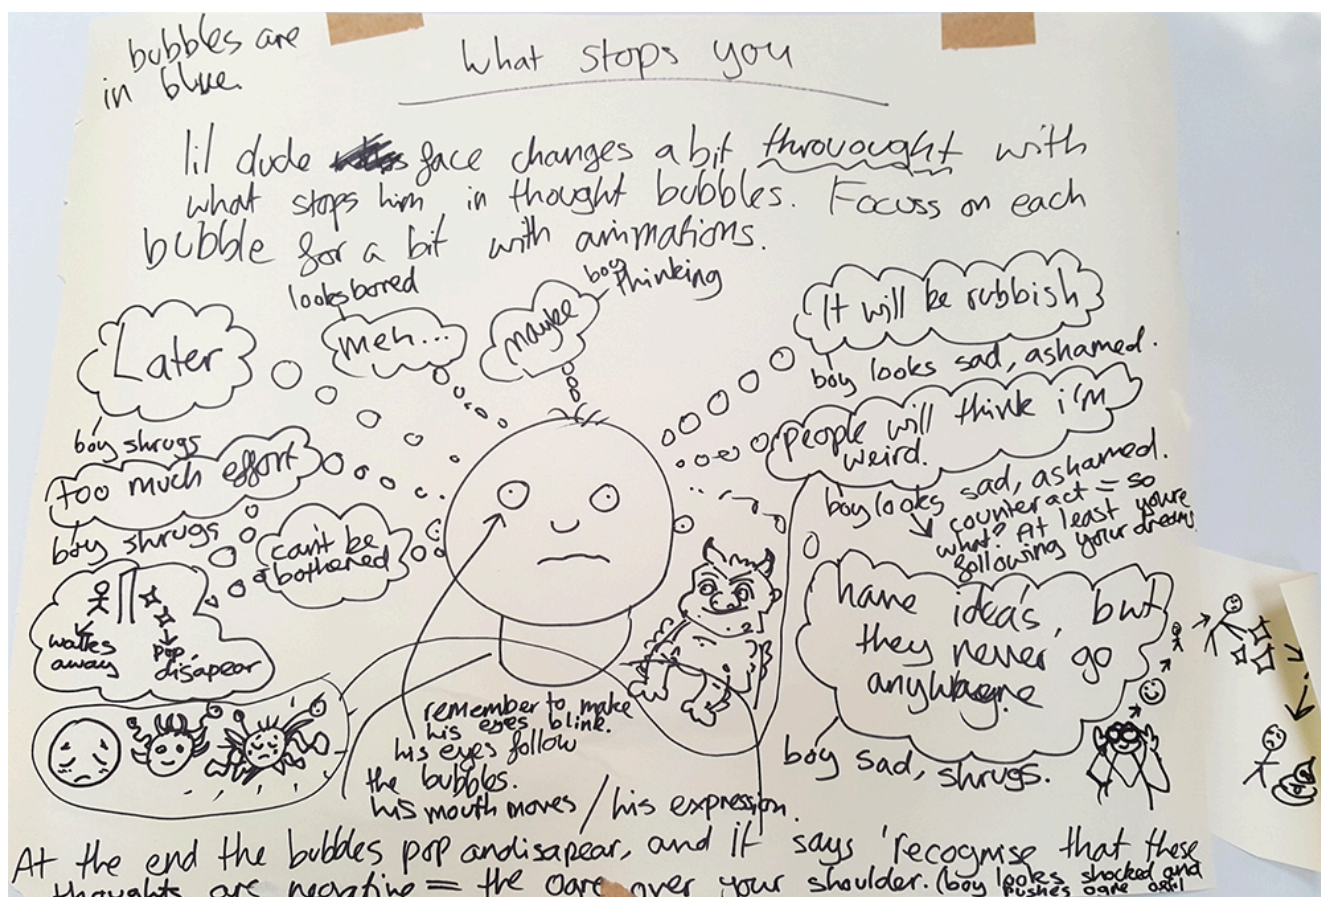 bubbles are
in blue.
What stops you
lil dude face changes a bit throuought with
what stops him in thought bubbles. Focuss on each
bubble for a bit with animmations.
looks bored
boy thinking
Later
meh...
maybe
It will be rubbish
boy shrugs
boy looks sad, ashamed.
too much effort
people will think i'm
weird.
boy shrugs
boy looks sad, ashamed.
counteract = so
what? At least youre
following your dreams
can't be
bothered
walks
away
pop
disapear
have idea's, but
they never go
anywhere
boy sad, shrugs.
remember to make
his eyes blink.
his eyes follow
the bubbles.
his mouth moves / his expression.
At the end the bubbles pop andisapear, and it says 'recognise that these
thoughts are negative = the ogre over your shoulder. (boy looks shocked and
pushes ogre